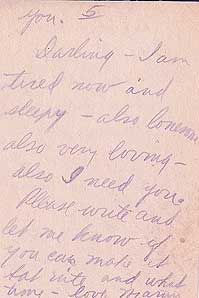 you. 5
Darling - I am
tired now and
sleepy - also lonesome
also very loving -
also I need you.
Please write and
let me know if
you can make it
Sat nite and what
time - Love Marion